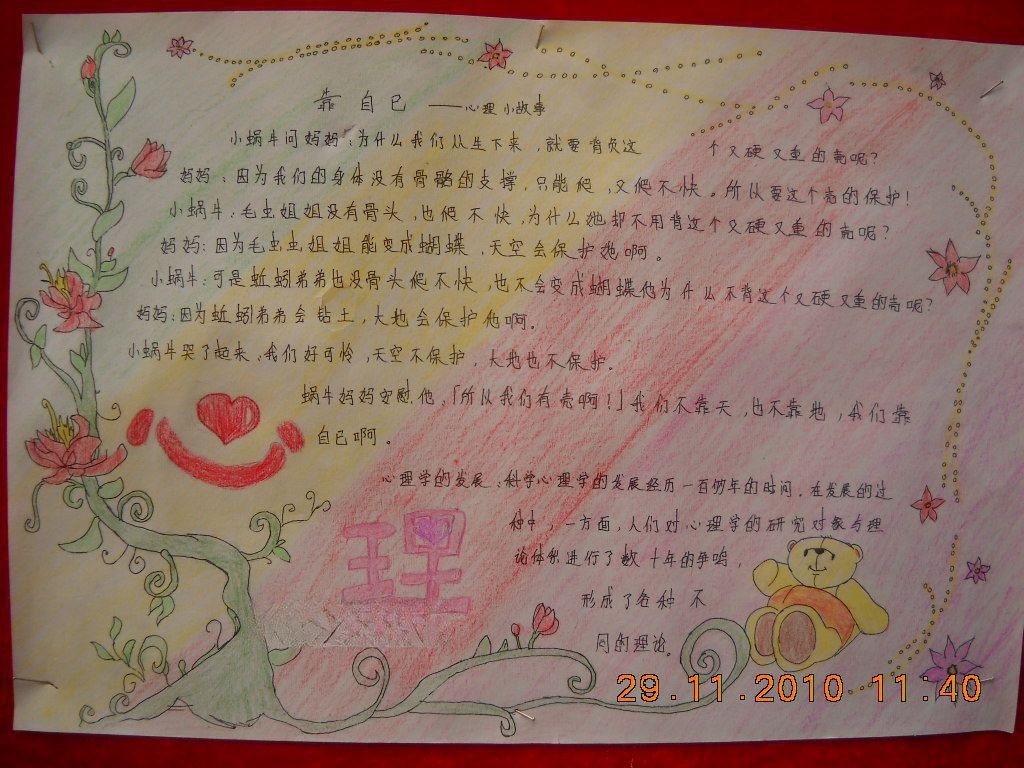 靠自己 ——心理小故事
小蜗牛问妈妈:为什么我们从生下来,就要背负这 个又硬又重的壳呢?
妈妈:因为我们的身体没有骨骼的支撑,只能爬,又爬不快。所以要这个壳的保护!
小蜗牛:毛虫姐姐没有骨头,也爬不快,为什么她却不用背这个又硬又重的壳呢?
妈妈:因为毛虫虫姐姐能变成蝴蝶,天空会保护她啊。
小蜗牛:可是蚯蚓弟弟也没骨头爬不快,也不会变成蝴蝶他为什么不背这个又硬又重的壳呢?
妈妈:因为蚯蚓弟弟会钻土,大地会保护他啊。
小蜗牛哭了起来:我们好可怜,天空不保护,大地也不保护。
蜗牛妈妈安慰他,「所以我们有壳啊!」我们不靠天,也不靠地,我们靠
自己啊。
心理学的发展:科学心理学的发展经历一百多年的时间。在发展的过
程中,一方面,人们对心理学的研究对象与理
论体系进行了数十年的争鸣,
形成了各种不
同的理论。
理
29.11.2010 11:40